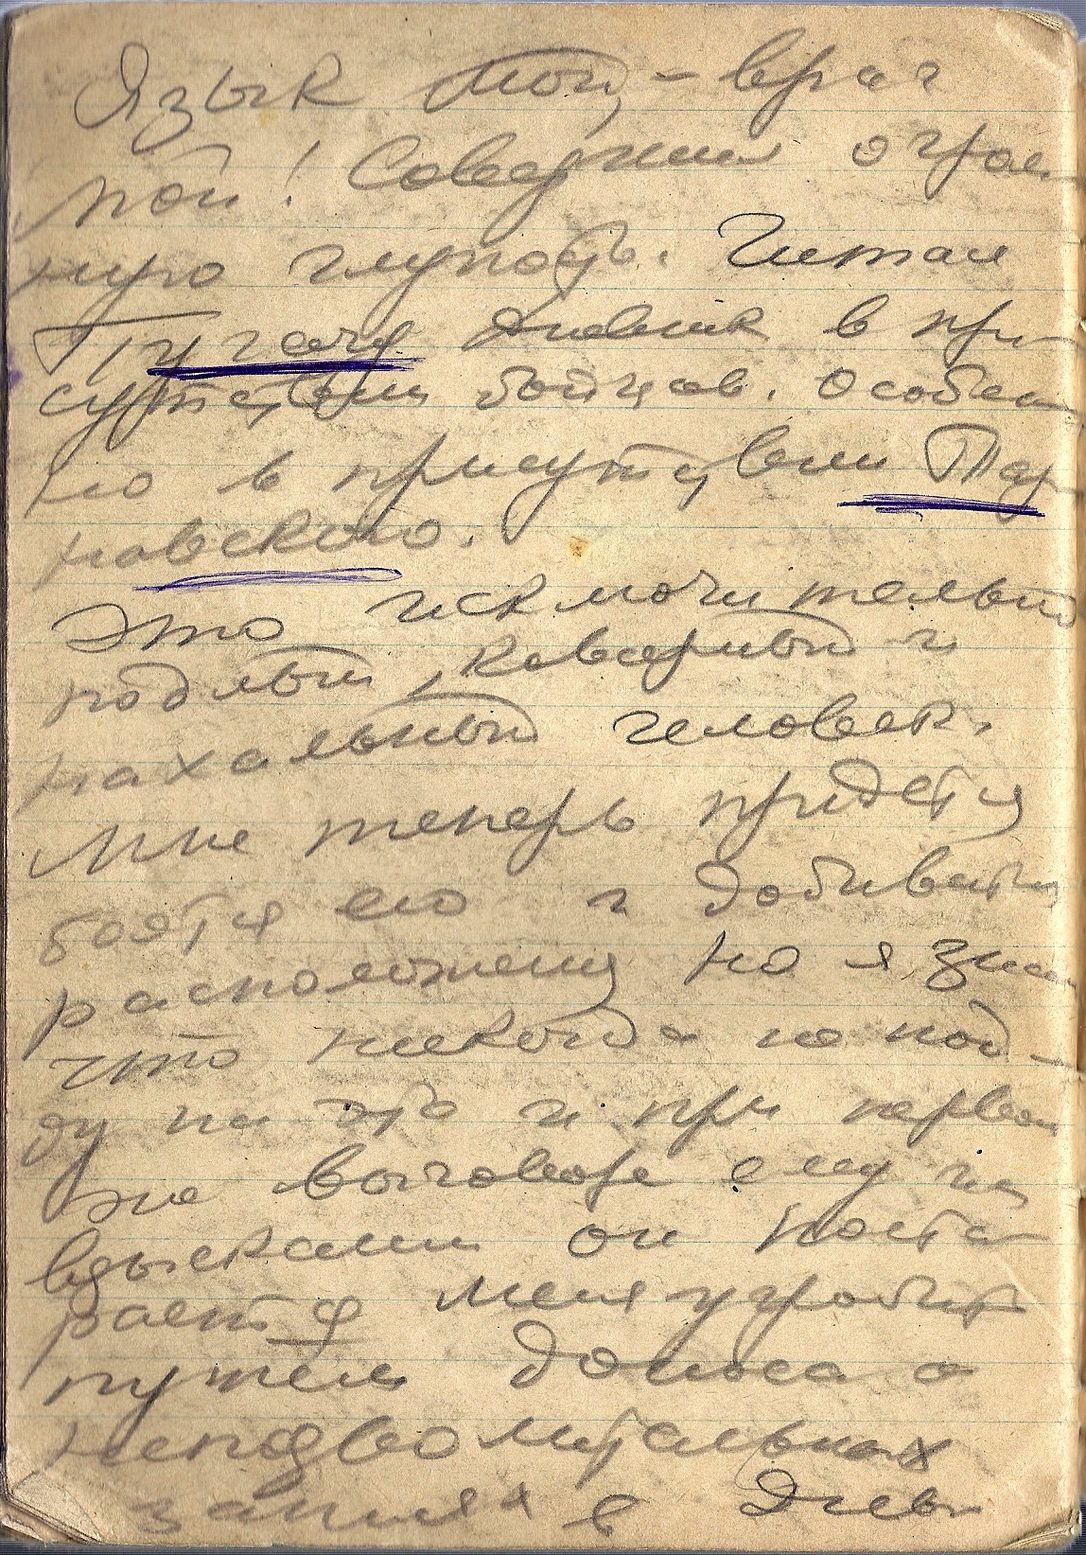 Язык мой, – враг
мой! Совершил огром
ную глупость. Читал
Пугачу дневник в при
сутствии бойцов. Особен
но в присутствии Тар
новского.
Это исключительно
подлый, коварный и
нахальный человек.
Мне теперь придется
боятся его и добиватся
расположения но я знаю
что никогда не пой-
ду на это и при первом
же выговоре ему или
взыскании он поста
рается меня угробить
путем доноса о
непозволительных
записях в днев